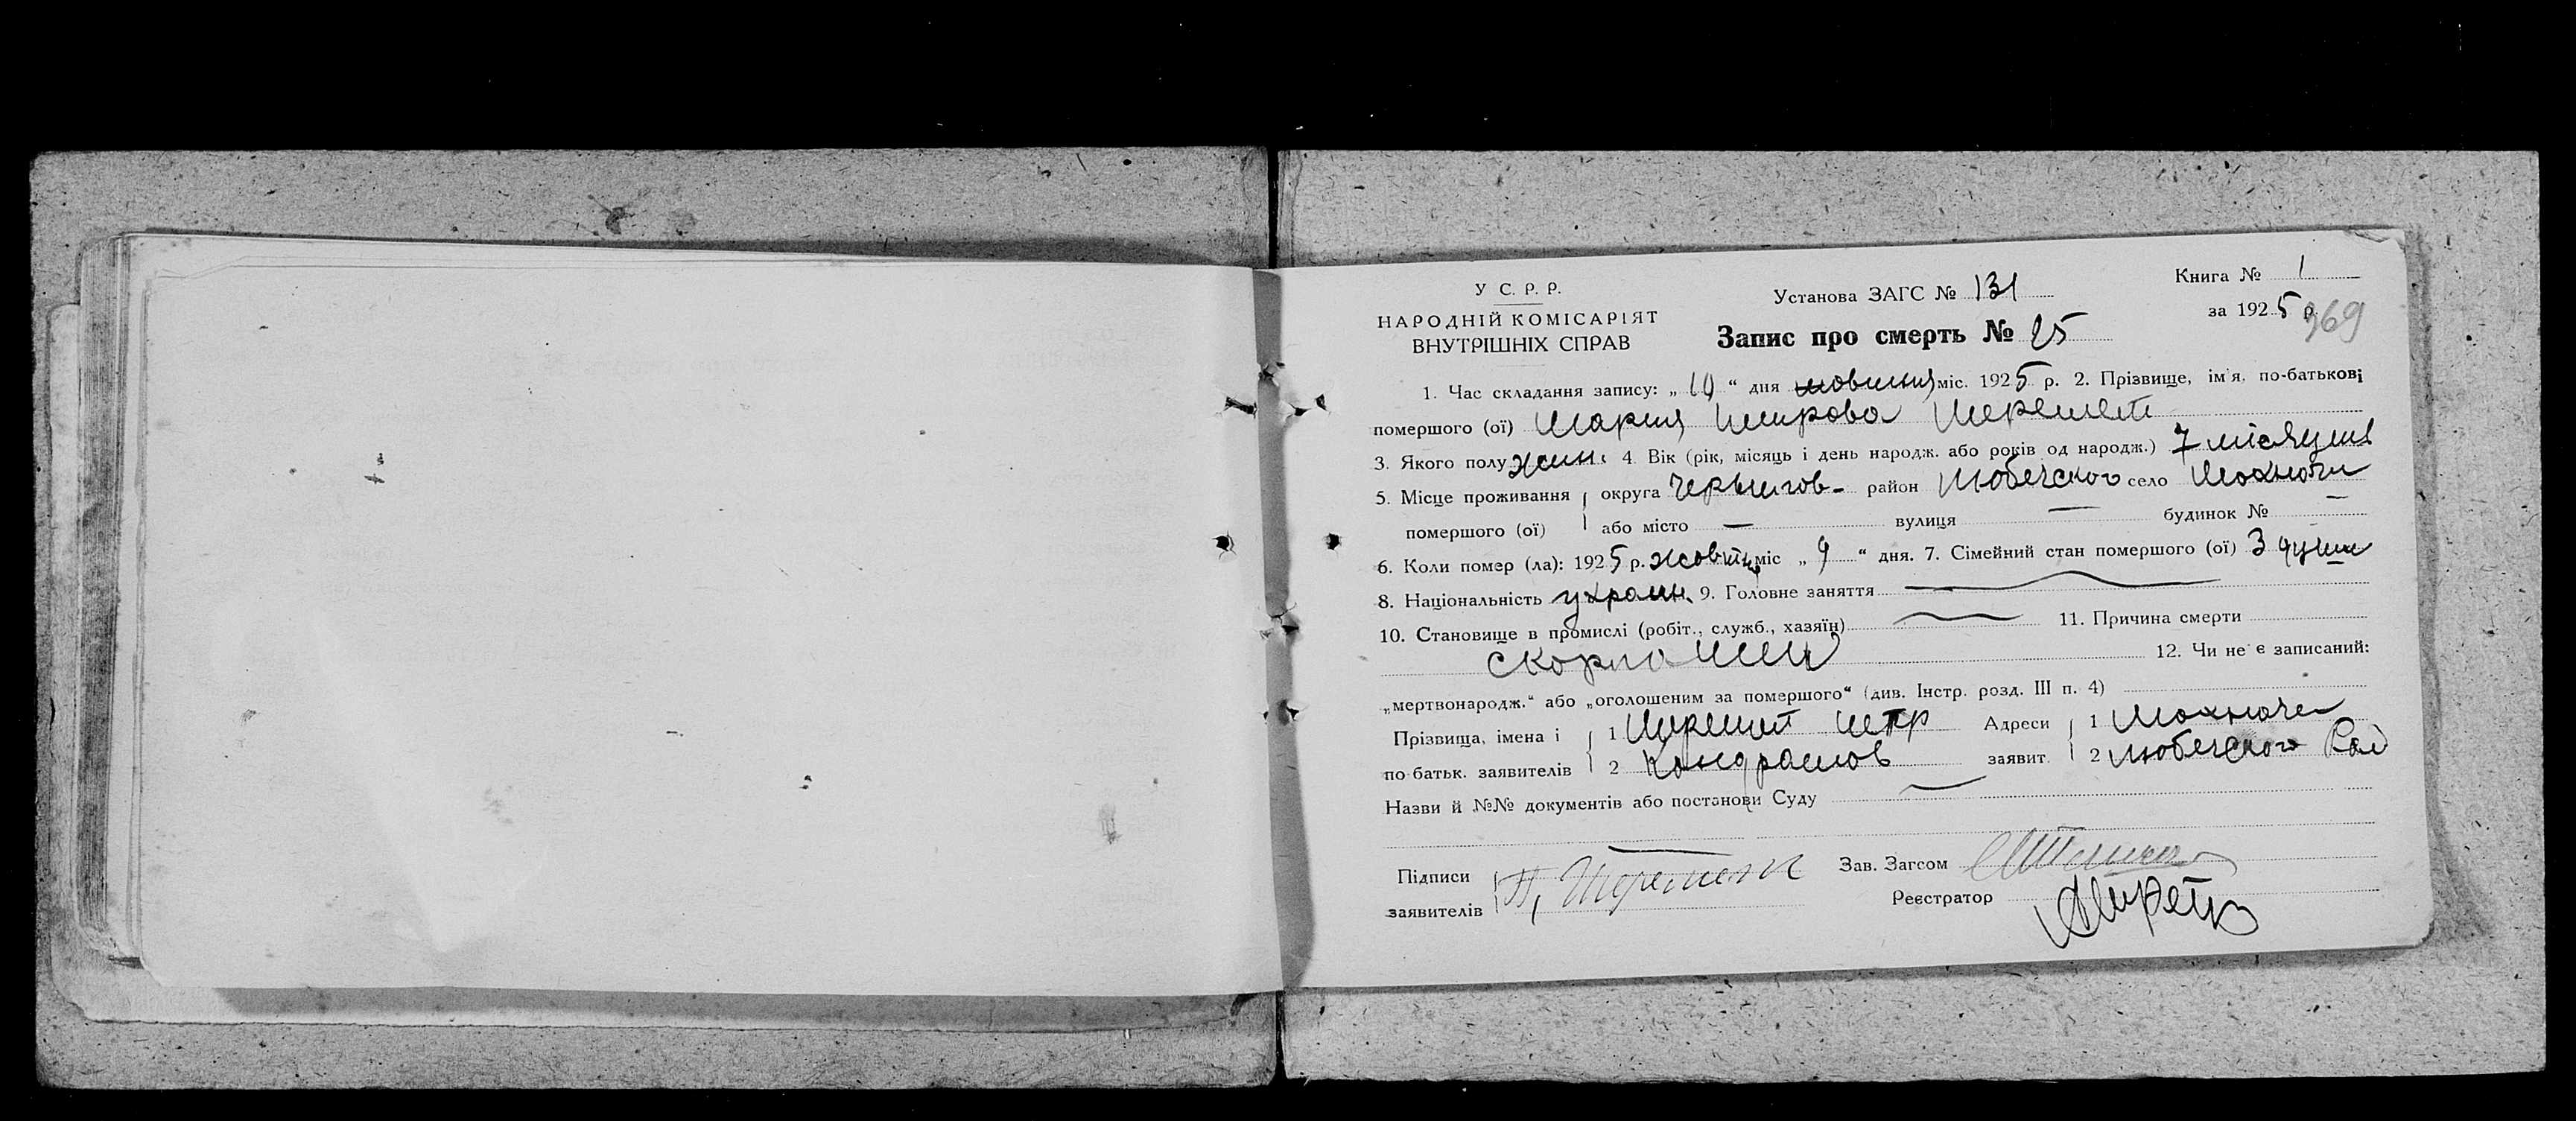 У С. Р. Р.
НАРОДНІЙ КОМІСАРІЯТ
ВНУТРІШНІХ СПРАВ
Установа ЗАГС № 131
Запис про смерть № 25
Книга № 1
за 1925 р.
369
1. Час складання запису: „ 10 “ дня жовтня міс. 1925 р. 2. Прізвище, ім'я, по-батькові
помершого (ої) Мария Петрова Шеремет
3. Якого полу жін. 4. Вік (рік, місяць і день народж. або років од народж.) 7 місяцив
5. Місце проживання округа Чернигов- район Любечского село Мохначи
помершого (ої) або місто — вулиця — будинок № —
6. Коли помер (ла): 1925 р. жовтня міс „ 9 “ дня. 7. Сімейний стан помершого (ої) 3 души
8. Національність украин. 9. Головне заняття
10. Становище в промислі (робіт., служб., хазяїн) 11. Причина смерти
12. Чи не є записаний:
„мертвонародж.“ або „оголошеним за помершого“ (див. Інстр. розд. III п. 4)
Прізвища, імена і 1 Шеремет Петр Адреси 1 Мохначи
по батьк. заявителів 2 Кондратов заявит. 2 Любечского Рай
Назви й №№ документів або постанови Суду —
Підписи П. Шеремет Зав. Загсом
заявителів Реєстратор